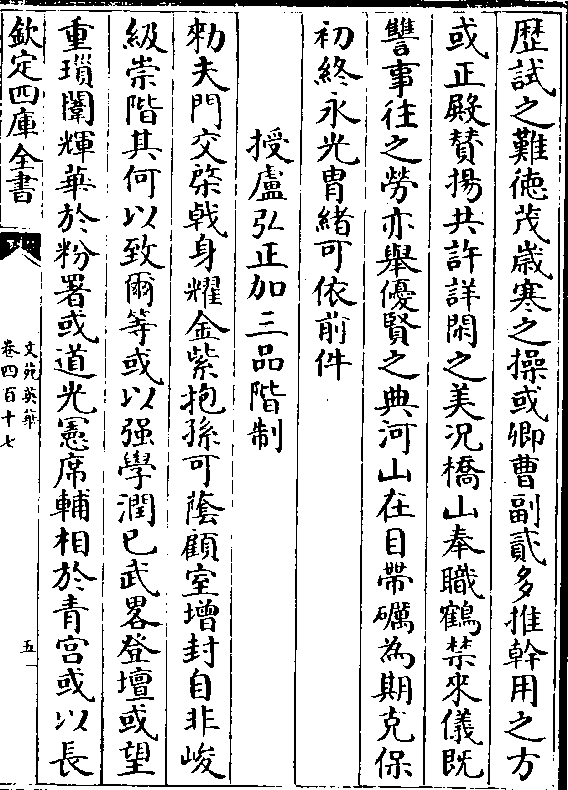 歴試之難徳茂嵗寒之操或卿曹副貳多推幹用之方
或正殿賛揚共許詳閑之美况橋山奉職鶴禁來儀既
讐事往之勞亦舉優賢之典河山在目帶礪為期克保
初終永光胄緒可依前件
授盧弘正加三品階制
勑夫門交棨戟身耀金紫抱孫可䕃顧室增封自非峻
級崇階其何以致爾等或以强學潤已武畧登壇或望
重瑣闈輝華於粉署或道光憲席輔相於青宫或以長
欽定四庫全書
文苑英華
卷四百十七
五